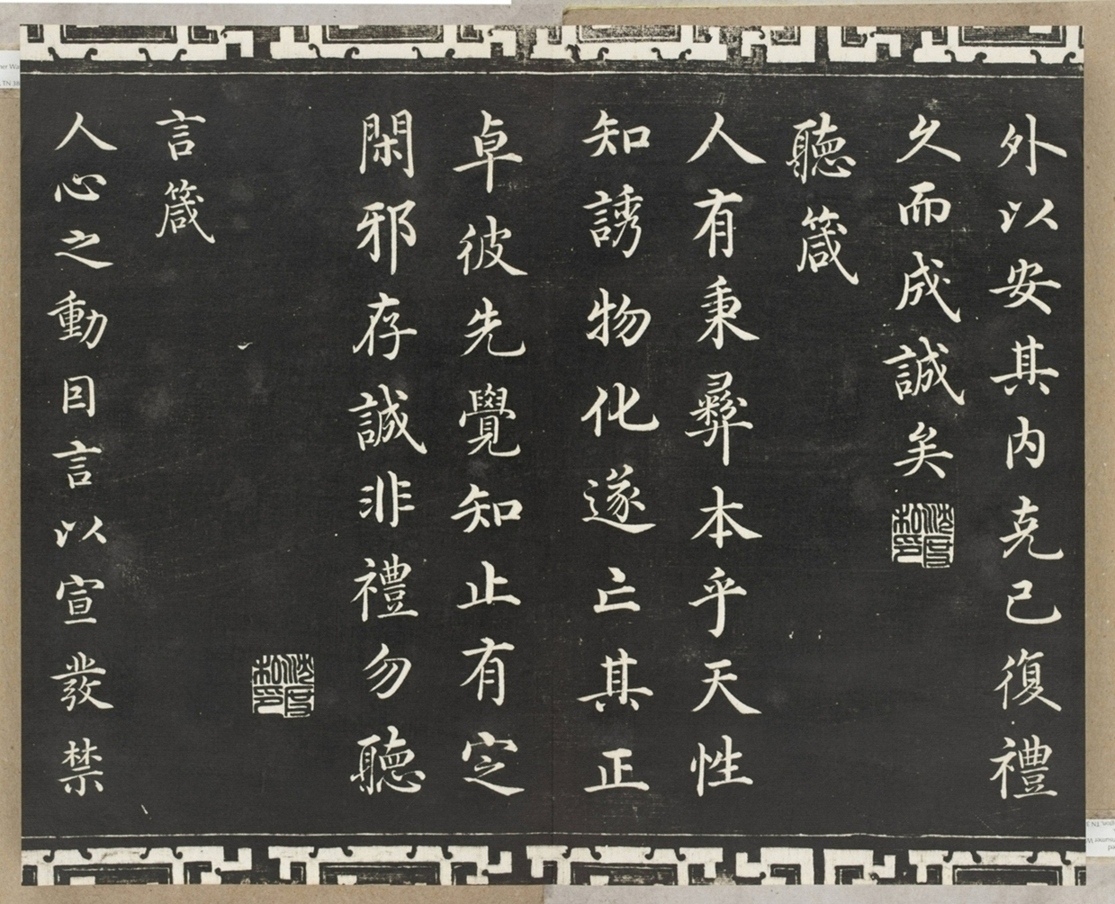 外以安其内克己復禮
久而成誠矣
聽箴
人有秉彝本乎天性
知誘物化遂亡其正
卓彼先覺知止有定
閑邪存誠非禮勿聽
言箴
人心之動因言以宣發禁